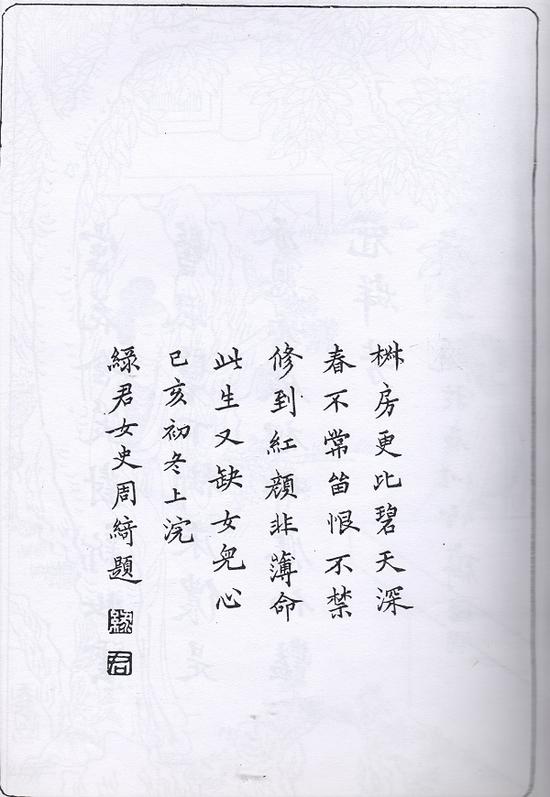 椒房更比碧天深
春不常留恨不禁
修到紅顔非薄命
此生又缺女兒心
己亥初冬上浣
綠君女史周綺題